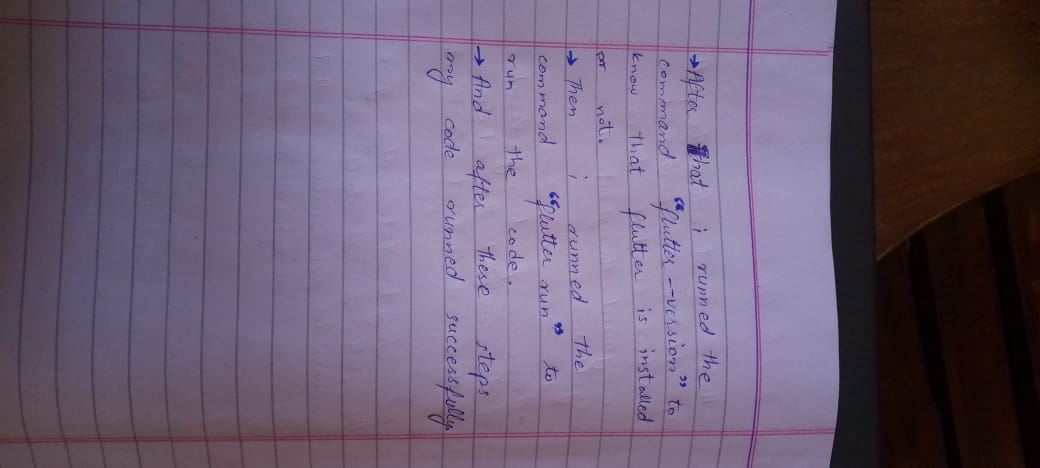 → After that i runned the
command "flutter --version" to
know that flutter is installed
or not.
→ Then i runned the
command "flutter run" to
run the code.
→ And after these steps
my code runned successfully.